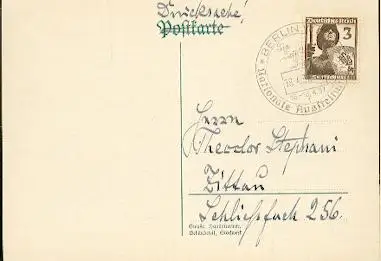 Drucksache!
Postkarte
Deutsches Reich
3
BERLIN
Nationale Ausstellung
Herrn
Theodor Stephani
Zittau
Schließfach 256.